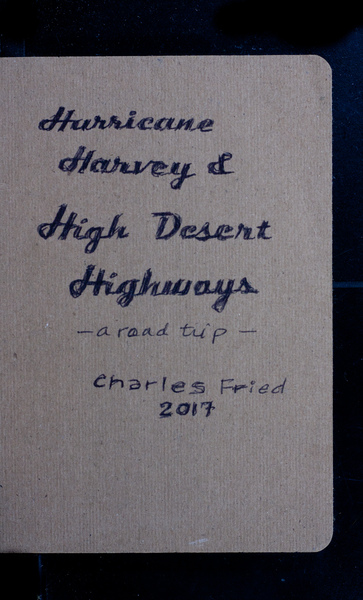 Hurricane
Harvey &
High Desert
Highways
— a road trip —
Charles Fried
2017